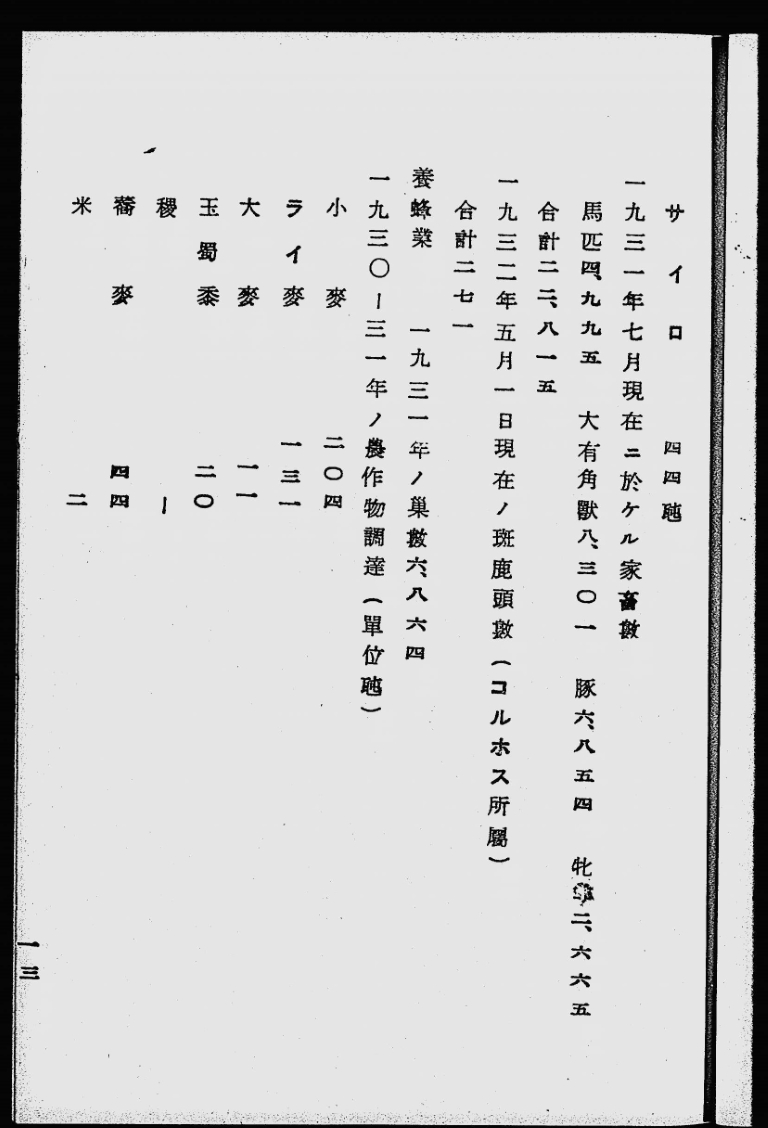 サイロ 四四瓲
一九三一年七月現在ニ於ケル家畜數
馬匹四、九九五 大有角獸八、三〇一 豚六、八五四 牝 二、六六五
合計二二、八一五
一九三二年五月一日現在ノ斑鹿頭數(コルホス所屬)
合計二七一
養蜂業 一九三一年ノ巢數六、八六四
一九三〇ー三一年ノ農作物調達(單位瓲)
小麥 二〇四
ライ麥 一三一
大麥 一一
玉蜀黍 二〇
稷 ー
蕎麥 四四
米 二
一三